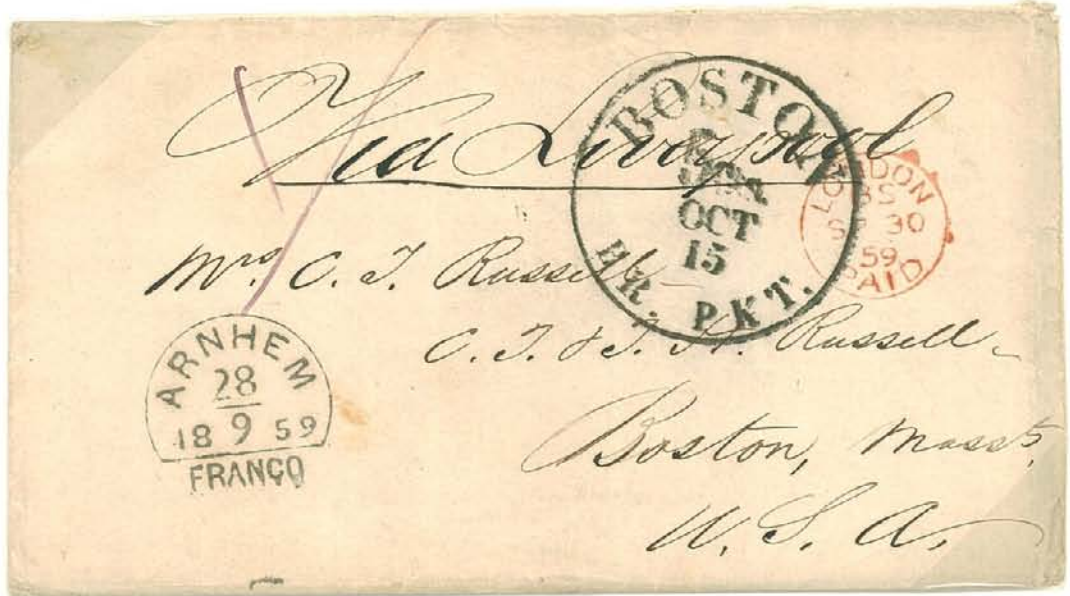 Via Liverpool
BOSTON
OCT
15
BR. PKT.
LONDON
30
59
PAID
Mrs. C. T. Russell
C. T. & T. H. Russell
Boston, Masst.
U. S. A.
ARNHEM
28
18 9 59
FRANCO